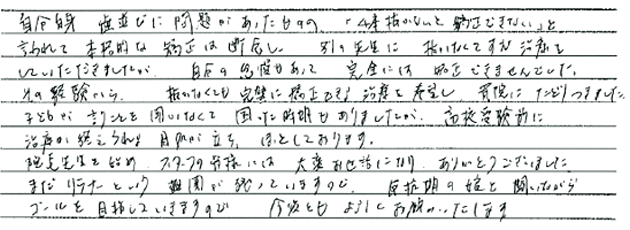 自分自身 歯並びに問題があったものの、「4本抜かないと矯正できない」と
言われて本格的な矯正は断念し、別の先生に抜かなくてすむ治療を
していただきましたが、自分の怠慢もあって完全には矯正できませんでした。
その経験から、抜かなくても完璧に矯正できる治療を希望し、貴院にたどりつきました。
子どもが言うことを聞いなくて困った時期もありましたが、高校受験前に
治療が終えられる目処が立ち、ほっとしております。
院長先生を始め、スタッフの皆様には大変お世話になり、ありがとうございました。
まだリテーナーという難関が残っていますので、反抗期の娘と闘いながら
ゴールを目指していきますので、今後ともよろしくお願いいたします